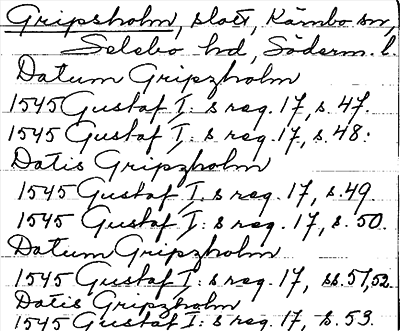 Gripsholm, slott, Kärnbo sn,
Selebo hd, Söderm. l.
Datum Gripzholm
1545 Gustaf I: s reg. 17, s. 47.
1545 Gustaf I: s reg. 17, s. 48.
Datis Gripzholm
1545 Gustaf I: s reg. 17, s. 49.
1545 Gustaf I: s reg. 17, s. 50.
Datum Gripzholm
1545 Gustaf I: s reg. 17, ss. 51, 52.
Datis Gripzholm
1545 Gustaf I: s reg. 17, s. 53